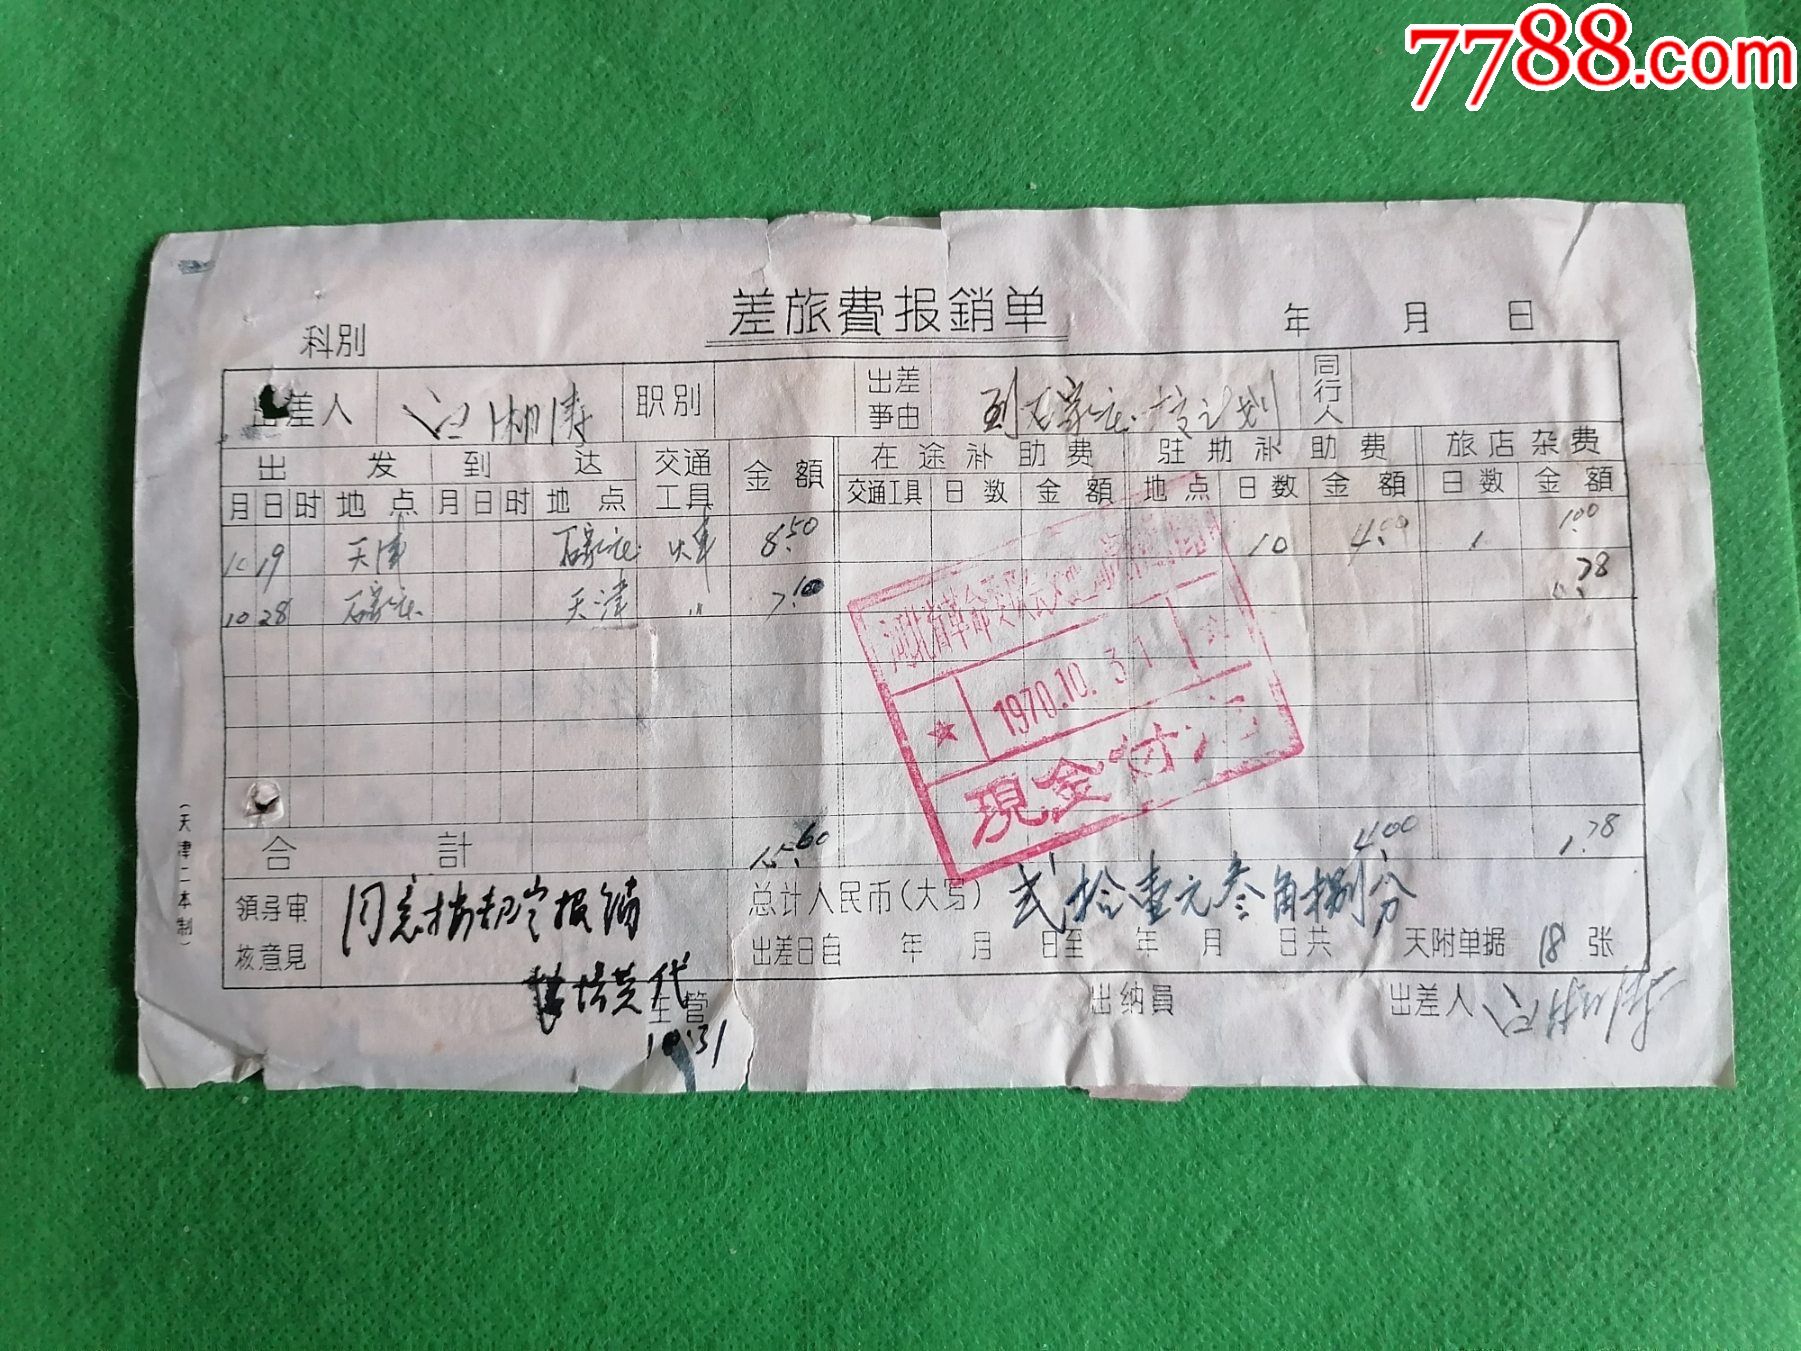 7788.com
差旅費报銷单
科别 年 月 日
出差人 职别 出差事由 到石家庄 计划 同行人
出发 到达 交通工具 金額 在途补助费 驻勘补助费 旅店杂费
月 日 时 地点 月 日 时 地点 交通工具 日数 金額 地点 日数 金額 日数 金額
10 19 天津 石家庄 火车 8.50 10 4.00 1 1.00
10 28 石家庄 天津 〃 7.10 0.78
河北省革命委员会
★ 1970.10.31
現金付讫
合計 15.60 4.00 1.78
領导审核意見 同意按规定报销
总计人民币(大写) 贰拾壹元叁角捌分
出差日自 年 月 日至 年 月 日共 天附单据 18 张
代
主管 出纳員 出差人
10.31
(天津二本制)